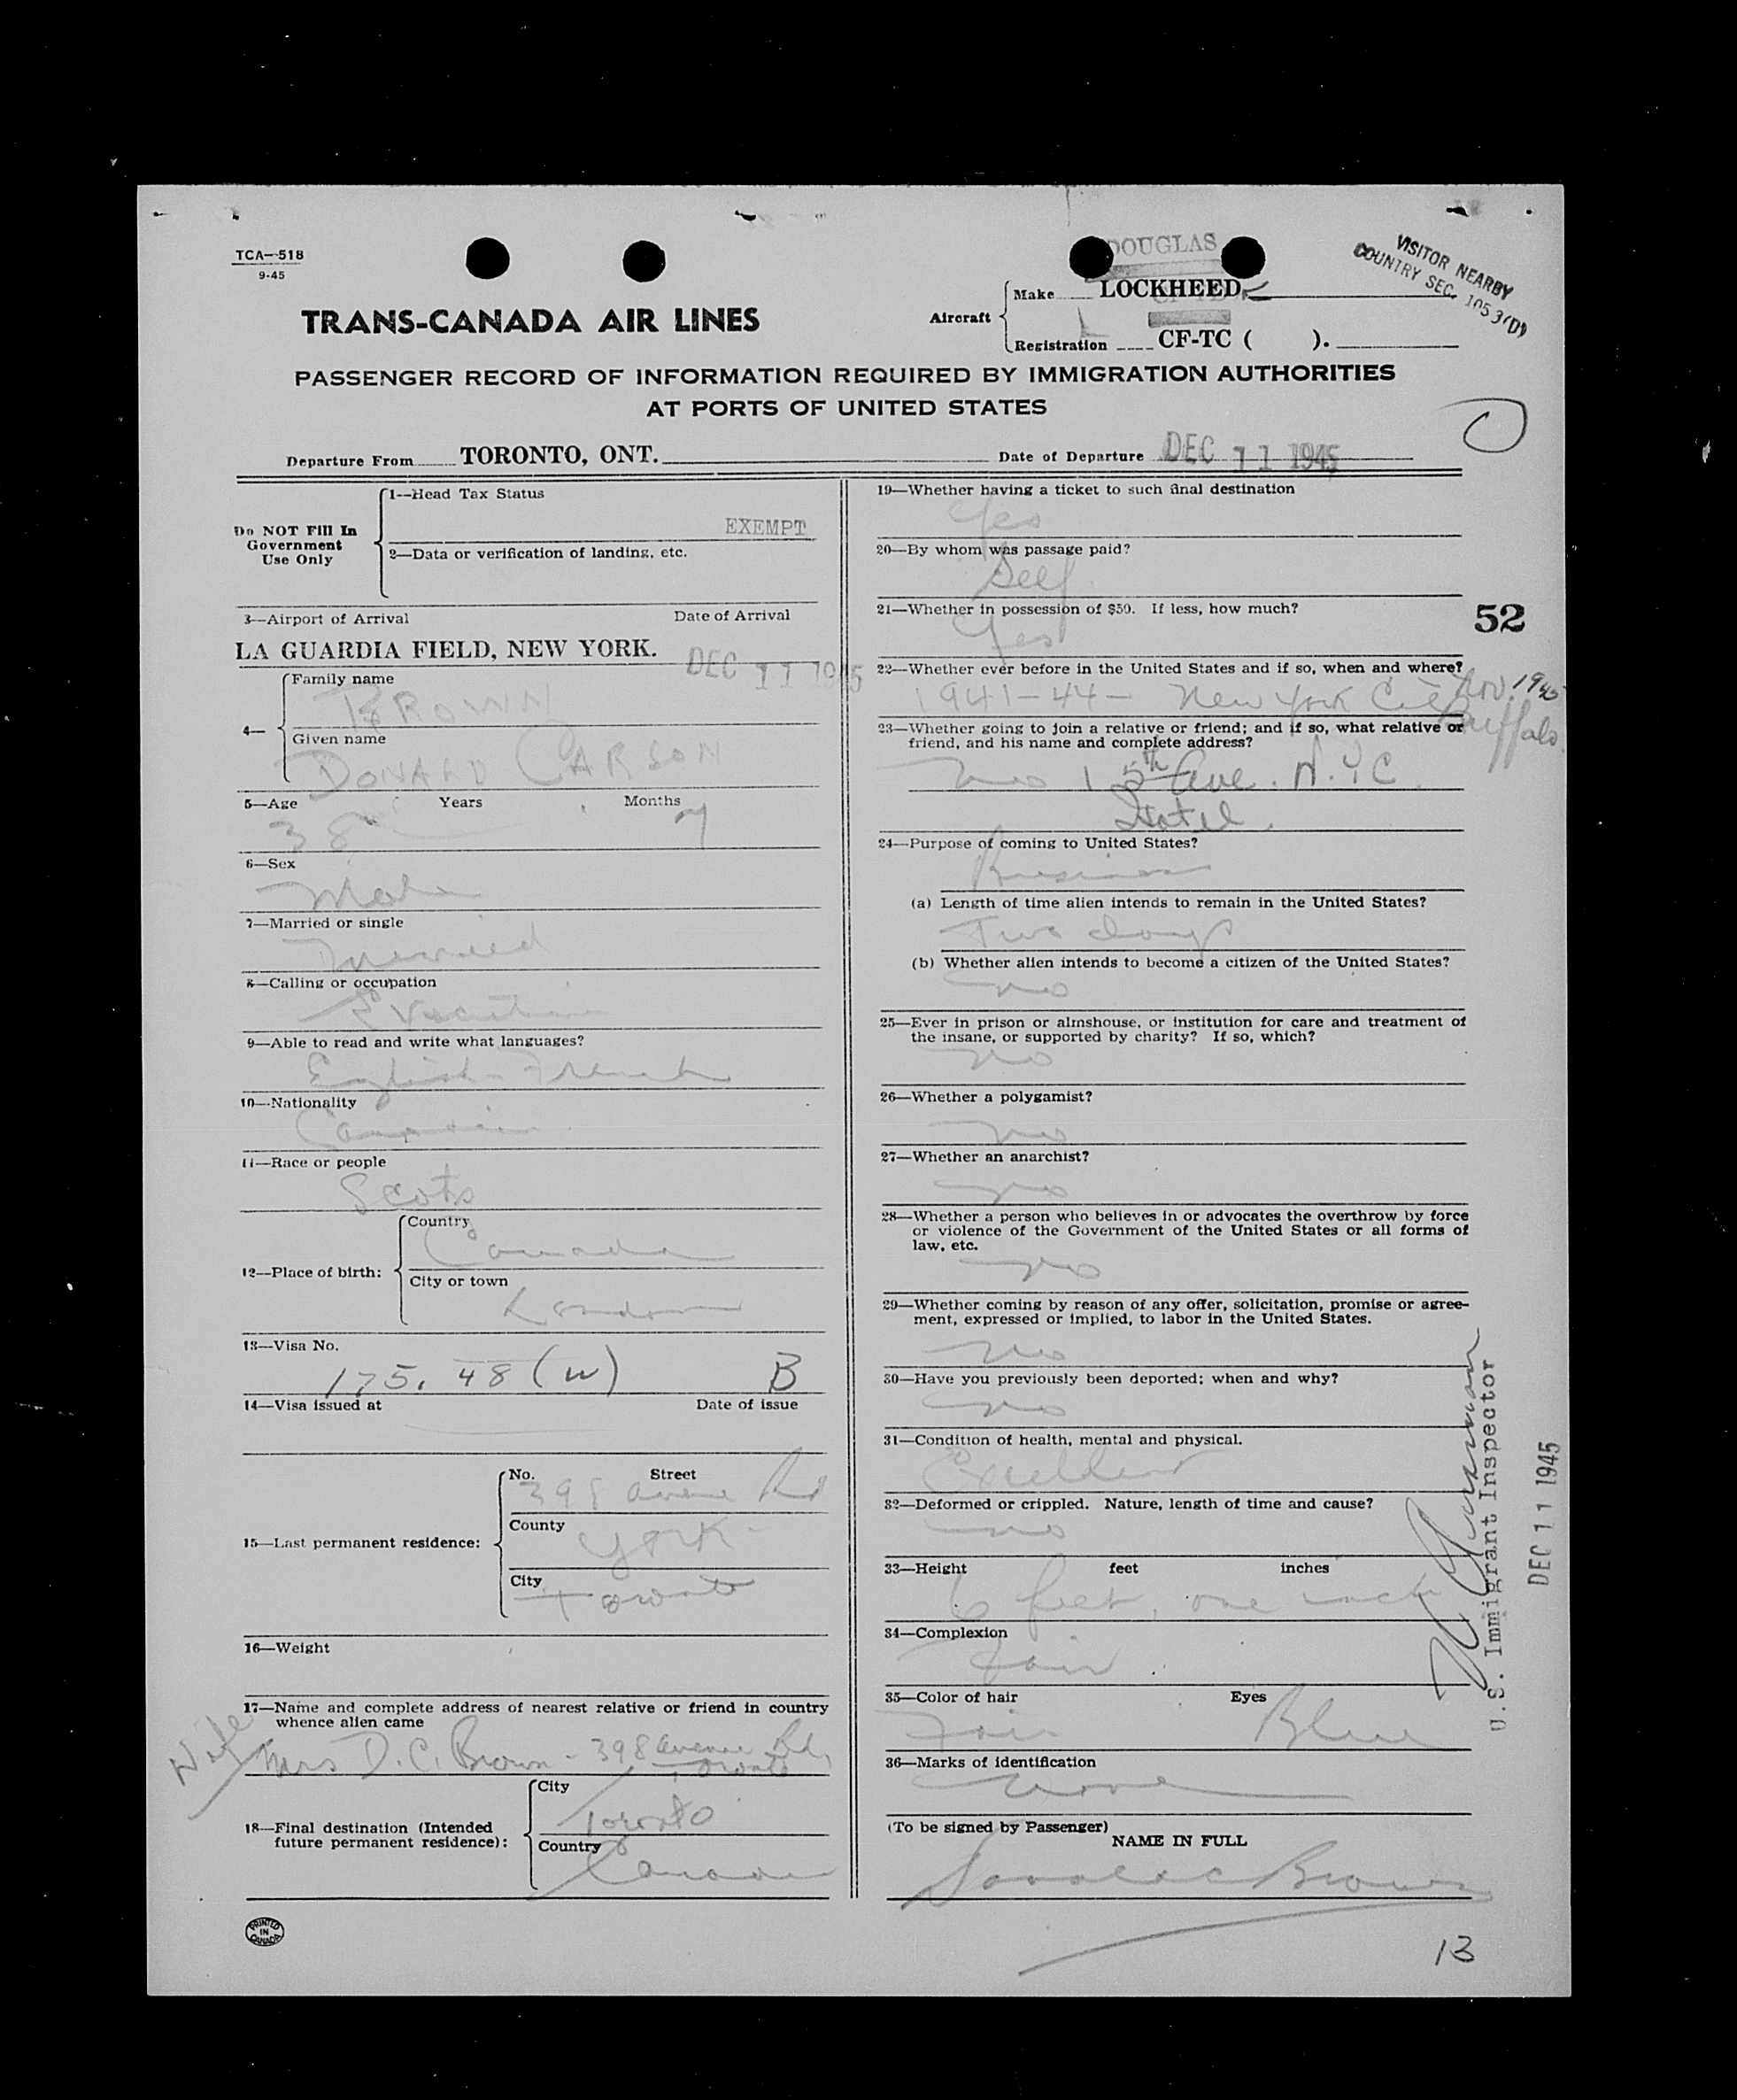 TCA-518
9-45
DOUGLAS
VISITOR NEARBY
COUNTRY SEC.
TRANS-CANADA AIR LINES
Aircraft
Make LOCKHEED
Registration CF-TC ( ).
PASSENGER RECORD OF INFORMATION REQUIRED BY IMMIGRATION AUTHORITIES
AT PORTS OF UNITED STATES
Departure From TORONTO, ONT. Date of Departure DEC 11 1945
Do NOT Fill In
Government
Use Only
1—Head Tax Status
EXEMPT
2—Data or verification of landing, etc.
3—Airport of Arrival Date of Arrival
LA GUARDIA FIELD, NEW YORK. DEC 11 1945
4—
Family name
BROWN
Given name
DONALD CARSON
5—Age Years Months
38 7
6—Sex
Male
7—Married or single
Married
8—Calling or occupation
Executive
9—Able to read and write what languages?
English - French
10—Nationality
Canadian
11—Race or people
Scots
12—Place of birth:
Country
Canada
City or town
London
13—Visa No.
175. 48 (W) B
14—Visa issued at Date of issue
15—Last permanent residence:
No. Street
398 Avenue Rd
County
York
City
Toronto
16—Weight
17—Name and complete address of nearest relative or friend in country
whence alien came
Wife
Mrs D. C. Brown - 398 Avenue Rd,
Toronto
18—Final destination (Intended
future permanent residence):
City
Toronto
Country
Canada
PRINTED
IN
CANADA
19—Whether having a ticket to such final destination
Yes
20—By whom was passage paid?
Self
21—Whether in possession of $50. If less, how much?
Yes
52
22—Whether ever before in the United States and if so, when and where?
1941-44 - New York City Nov. 1945
Buffalo
23—Whether going to join a relative or friend; and if so, what relative or
friend, and his name and complete address?
No 1 5th Ave. N.Y.C.
Hotel.
24—Purpose of coming to United States?
Business
(a) Length of time alien intends to remain in the United States?
Two days
(b) Whether alien intends to become a citizen of the United States?
no
25—Ever in prison or almshouse, or institution for care and treatment of
the insane, or supported by charity? If so, which?
no
26—Whether a polygamist?
no
27—Whether an anarchist?
no
28—Whether a person who believes in or advocates the overthrow by force
or violence of the Government of the United States or all forms of
law, etc.
no
29—Whether coming by reason of any offer, solicitation, promise or agree-
ment, expressed or implied, to labor in the United States.
no
30—Have you previously been deported; when and why?
no
31—Condition of health, mental and physical.
Excellent
32—Deformed or crippled. Nature, length of time and cause?
no
33—Height feet inches
6 feet, one inch
34—Complexion
Fair
35—Color of hair Eyes
Fair Blue
36—Marks of identification
none
(To be signed by Passenger)
NAME IN FULL
Donald C Brown
U.S. Immigrant Inspector
DEC 11 1945
13